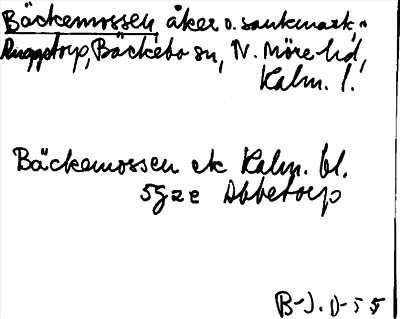 Bäckemossen, åker o. sankmark,
Ruggstorp, Bäckebo sn, N. Möre hd,
Kalm. l.
Bäckemossen ek Kalm. bl.
5g2e Abbetorp
B-J. D-55